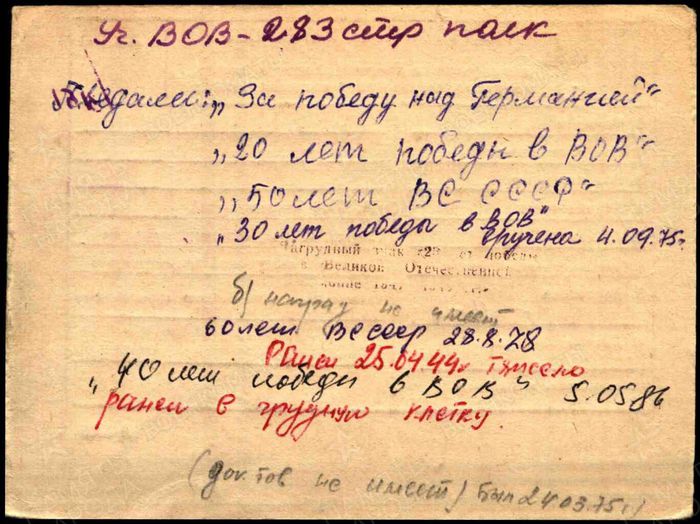 Уч. ВОВ - 283 стр полк
Медали: „За победу над Германией"
„20 лет победы в ВОВ"
„50 лет ВС СССР"
„30 лет победы в ВОВ"
вручена 4.09.75г
Нагрудный знак «25 лет победы
в Великой Отечественной
войне 1941-1945 гг.»
б) наград не имеет
60 лет ВС СССР 28.8.78
Ранен 25.04.44г тяжело
„40 лет победы в ВОВ" 5.05.86
ранен в грудную клетку
(док-тов не имеет) был 24.03.75г)